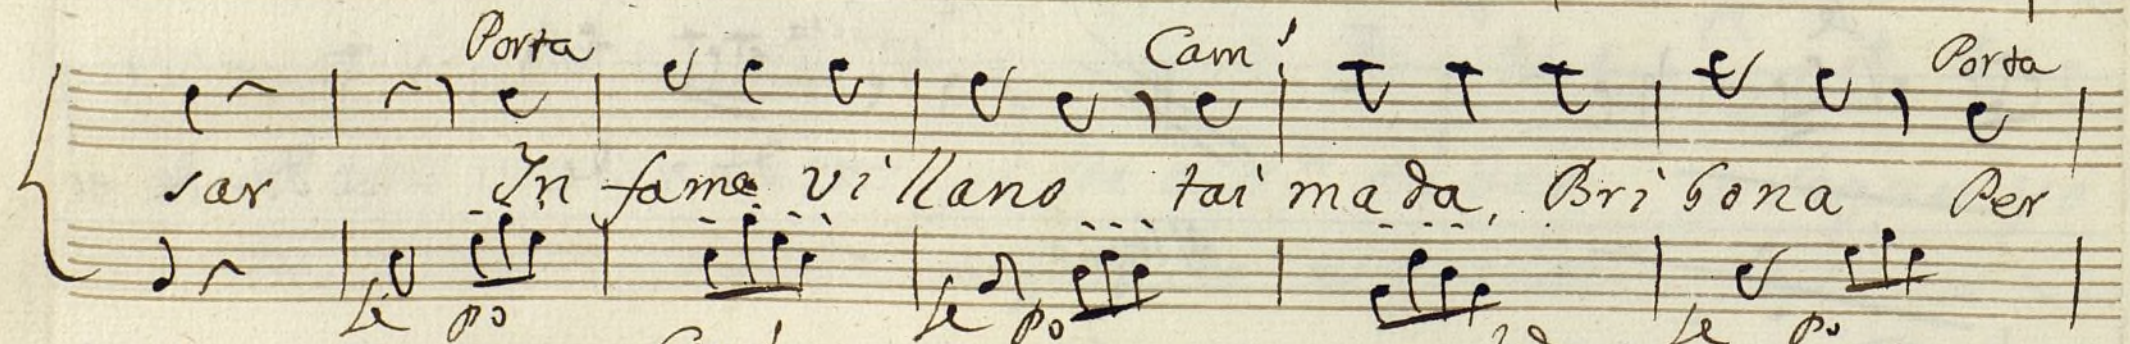 Porta Cam Porta
sar In fame villano taimada, Bribona Per
Le po Le po Le po